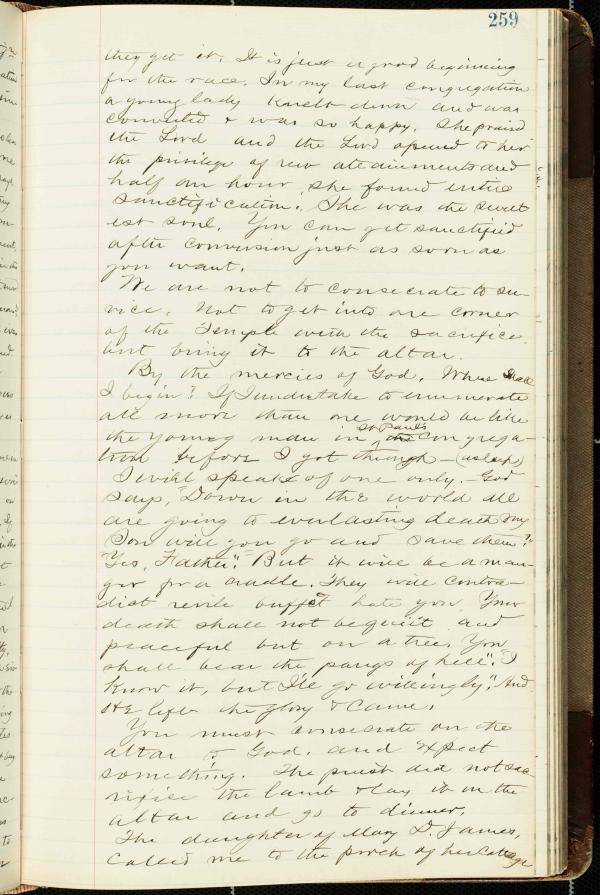 259
they get it. It is just a good beginning
for the race. In my last congregation
a young lady knelt down and was
converted & was so happy. She praised
the Lord and the Lord opened to her
the privilege of new attainments and
half an hour she found entire
sanctification. She was the sweet
est soul. You can get sanctified
after conversion just as soon as
you want.
We are not to consecrate to ser-
vice. Not to get into one corner
of the Temple with the sacrifice
but bring it to the altar.
By the mercies of God. Where shall
I begin? If I undertake to enumerate
all more than one would be like
the young man in St Paul's congrega-
tion before I got through — (asleep)
I will speak of one only. — God
says, "Down in the world all
are going to everlasting death my
Son will you go and save them?"
"Yes, Father." But it will be a man-
ger for a cradle. They will contra-
dict revile buffet hate you. Your
death shall not be quiet and
peaceful but on a tree. You
shall bear the pangs of hell". "I
know it, but I'll go willingly". And
HE left the glory & came.
You must consecrate on the
altar to God. and expect
something. The priest did not sac-
rifice the lamb & lay it on the
altar and go to dinner.
The daughter of Mary D. James,
called me to the porch of her cottage